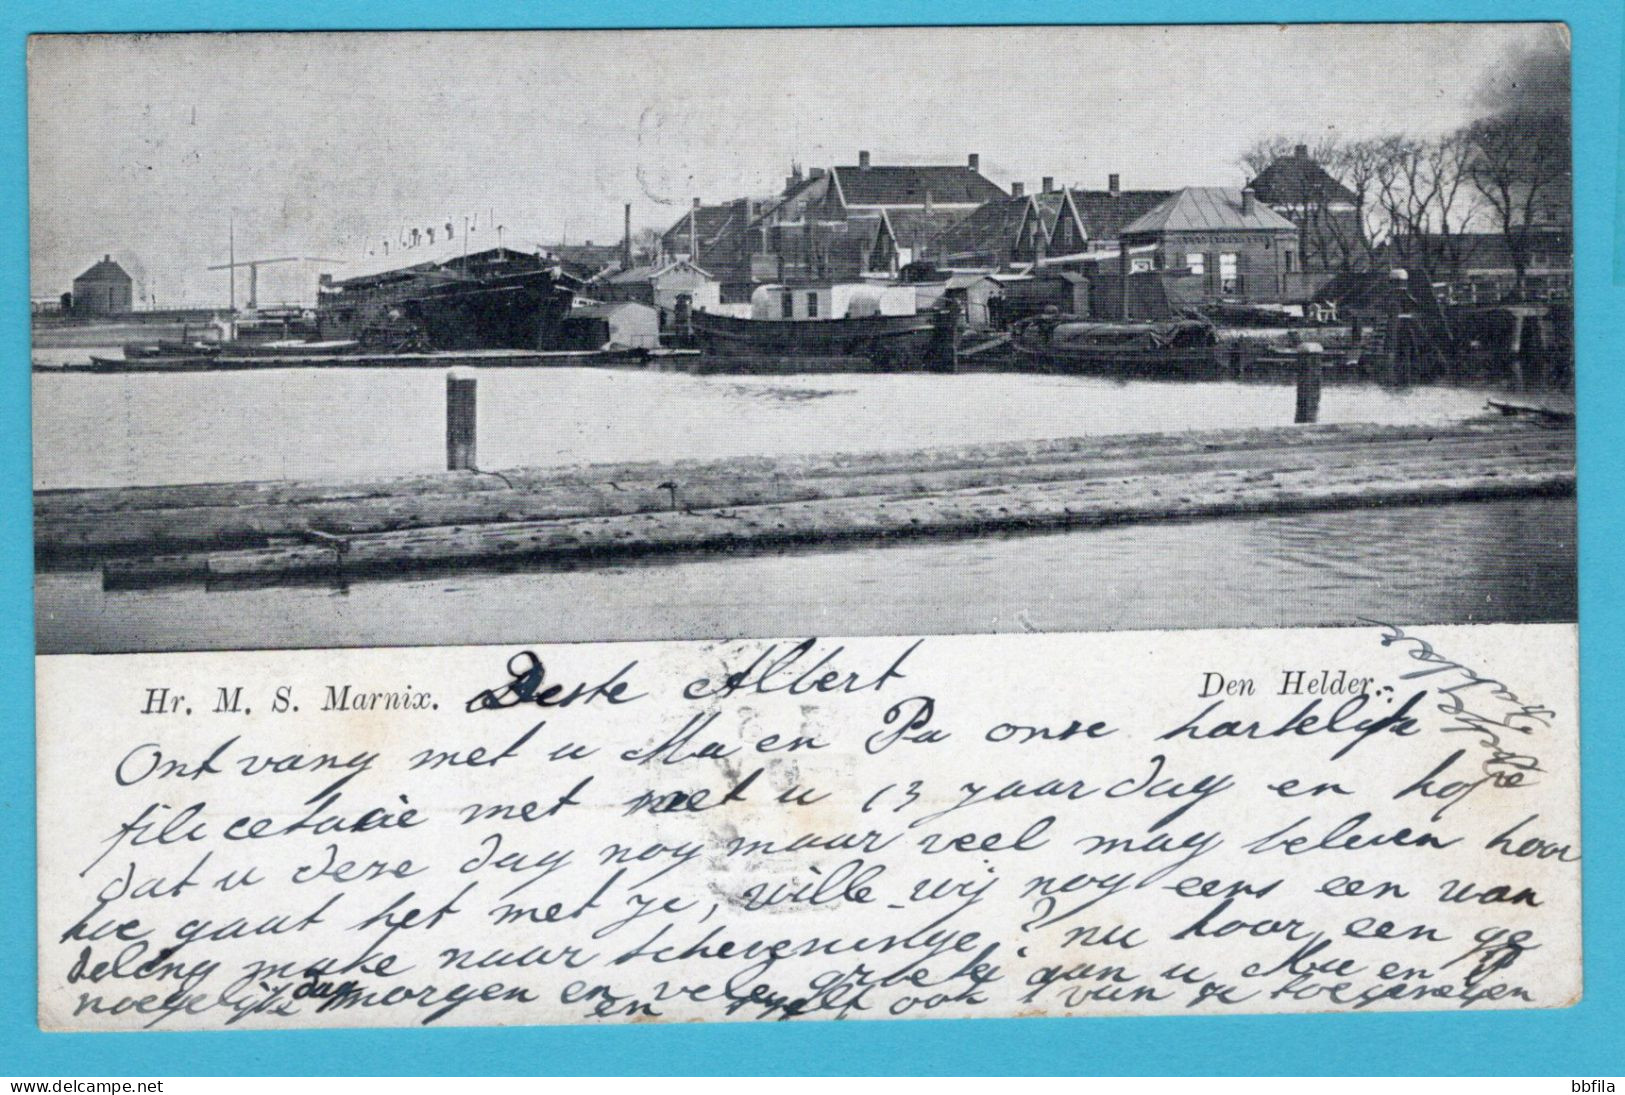 Hr. M. S. Marnix.
Den Helder.
Beste Albert
Ontvang met u Ma en Pa onze hartelijk
filicetatie met met u 13 jaardag en hope
dat u deze dag nog maar veel mag beleven hoor
hoe gaat het met je, wille wij nog eens een wan
deling make naar scheveninge? nu hoor een ge
noegelijke dag morgen en vele groete aan u Ma en P
en zelf ook van
delhaas.be
bbfila